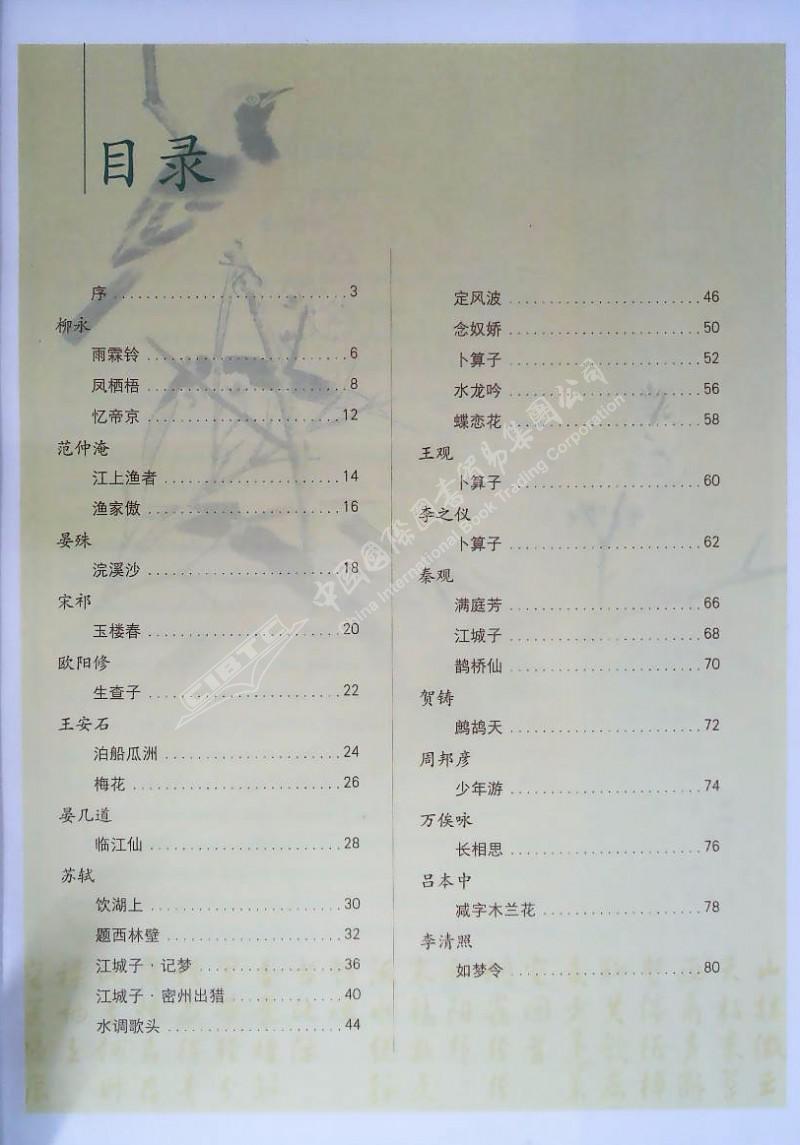 目录
序 3
柳永
雨霖铃 6
凤栖梧 8
忆帝京 12
范仲淹
江上渔者 14
渔家傲 16
晏殊
浣溪沙 18
宋祁
玉楼春 20
欧阳修
生查子 22
王安石
泊船瓜洲 24
梅花 26
晏几道
临江仙 28
苏轼
饮湖上 30
题西林壁 32
江城子·记梦 36
江城子·密州出猎 40
水调歌头 44
定风波 46
念奴娇 50
卜算子 52
水龙吟 56
蝶恋花 58
王观
卜算子 60
李之仪
卜算子 62
秦观
满庭芳 66
江城子 68
鹊桥仙 70
贺铸
鹧鸪天 72
周邦彦
少年游 74
万俟咏
长相思 76
吕本中
减字木兰花 78
李清照
如梦令 80
中国国际图书贸易集团公司
China International Book Trading Corporation
CIBTC